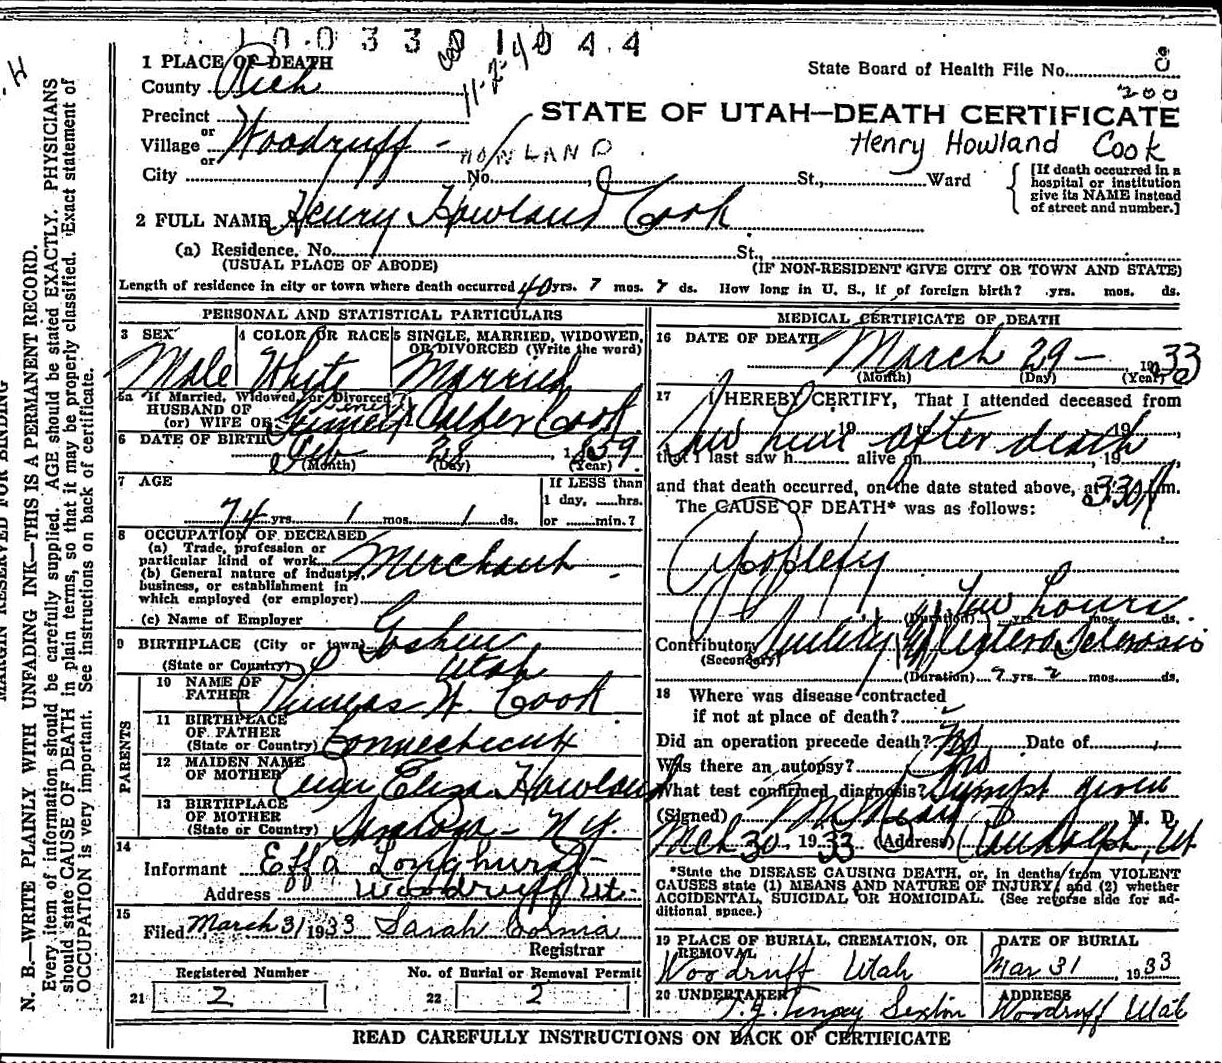 1003301044
11-2-40
1 PLACE OF DEATH
County Rich
State Board of Health File No.
200
Precinct
STATE OF UTAH—DEATH CERTIFICATE
or
Village Woodruff -
Henry Howland Cook
or
HOWLAND
City No. St., Ward
[If death occurred in a
hospital or institution
give its NAME instead
of street and number.]
2 FULL NAME Henry Howland Cook
(a) Residence, No. St.,
(USUAL PLACE OF ABODE) (IF NON-RESIDENT GIVE CITY OR TOWN AND STATE)
Length of residence in city or town where death occurred 40 yrs. 7 mos. 7 ds. How long in U. S., if of foreign birth? yrs. mos. ds.
PERSONAL AND STATISTICAL PARTICULARS
3 SEX 4 COLOR OR RACE 5 SINGLE, MARRIED, WIDOWED,
OR DIVORCED (Write the word)
Male White Married
5a If Married, Widowed, or Divorced
HUSBAND OF
(or) WIFE OF Cook
6 DATE OF BIRTH Feb 28, 1859
(Month) (Day) (Year)
7 AGE
If LESS than
1 day, hrs.
74 yrs. 1 mos. 1 ds. or min.?
8 OCCUPATION OF DECEASED
(a) Trade, profession or
particular kind of work Merchant
(b) General nature of industry,
business, or establishment in
which employed (or employer)
(c) Name of Employer
9 BIRTHPLACE (City or town) Goshen
(State or Country) Utah
PARENTS
10 NAME OF
FATHER Phineas W. Cook
11 BIRTHPLACE
OF FATHER
(State or Country) Connecticut
12 MAIDEN NAME
OF MOTHER Ann Eliza Howland
13 BIRTHPLACE
OF MOTHER
(State or Country) Saratoga - N.Y.
14
Informant Effa Longhurst
Address Woodruff Ut.
15
Filed March 31 1933 Sarah Cornia
Registrar
Registered Number No. of Burial or Removal Permit
21 2 22 2
MEDICAL CERTIFICATE OF DEATH
16 DATE OF DEATH
March 29 - 1933
(Month) (Day) (Year)
17 I HEREBY CERTIFY, That I attended deceased from
, 19 , 19
Saw him after death
that I last saw h alive on , 19
and that death occurred, on the date stated above, at 330 m.
The CAUSE OF DEATH* was as follows:
Apoplexy
few hours
(Duration) yrs. mos. ds.
Contributory Senility & Arterio Sclerosis
(Secondary)
(Duration) ? yrs. ? mos. ds.
18 Where was disease contracted
if not at place of death?
Did an operation precede death? No Date of
Was there an autopsy? No
What test confirmed diagnosis? Sympt given
(Signed) M. D.
Mch 30 1933 (Address) Randolph, Ut
*State the DISEASE CAUSING DEATH, or, in deaths from VIOLENT
CAUSES state (1) MEANS AND NATURE OF INJURY, and (2) whether
ACCIDENTAL, SUICIDAL OR HOMICIDAL. (See reverse side for ad-
ditional space.)
19 PLACE OF BURIAL, CREMATION, OR
REMOVAL
Woodruff Utah
DATE OF BURIAL
Mar 31, 1933
20 UNDERTAKER
Sexton
ADDRESS
Woodruff Utah
READ CAREFULLY INSTRUCTIONS ON BACK OF CERTIFICATE
MARGIN RESERVED FOR BINDING
N. B.—WRITE PLAINLY WITH UNFADING INK—THIS IS A PERMANENT RECORD.
Every item of information should be carefully supplied. AGE should be stated EXACTLY. PHYSICIANS
should state CAUSE OF DEATH in plain terms, so that it may be properly classified. Exact statement of
OCCUPATION is very important. See instructions on back of certificate.